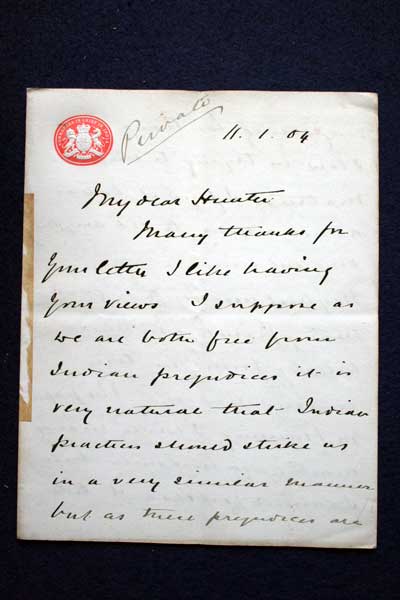 Private
11.1.04
My dear Hunter
Many thanks for
Your letter I like having
Your views I suppose as
we are both free from
Indian prejudices it is
very natural that Indian
practices should strike us
in a very similar manner
but as these prejudices are